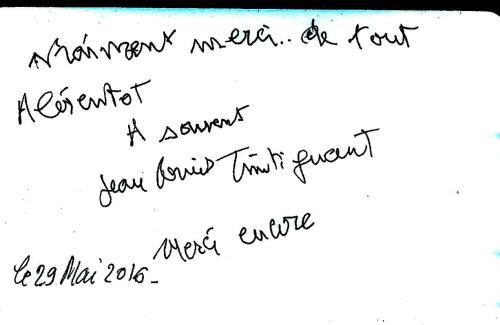 Vraiment merci.. de tout
A bientot
A souvent
Jean Louis Trintignant
Merci encore
le 29 Mai 2016-